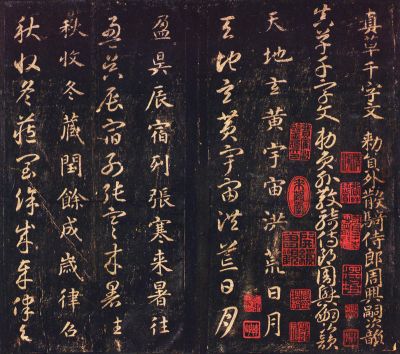 真草千字文 勅員外散騎侍郎周興嗣次韻
真草千字文 勅員外散騎侍郎周興嗣次韻
天地玄黃宇宙洪荒日月
天地玄黃宇宙洪荒日月
盈昃辰宿列張寒來暑往
盈昃辰宿列張寒來暑往
秋收冬藏閏餘成歲律呂
秋收冬藏閏餘成歲律呂